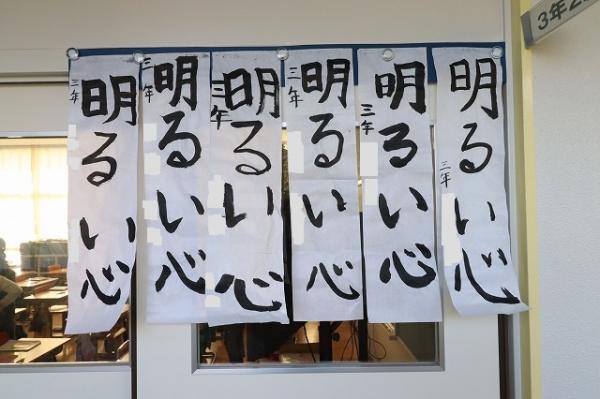 3年2
明るい心
三年
明るい心
三年
明るい心
三年
明るい心
三年
明るい心
三年
明るい心
三年